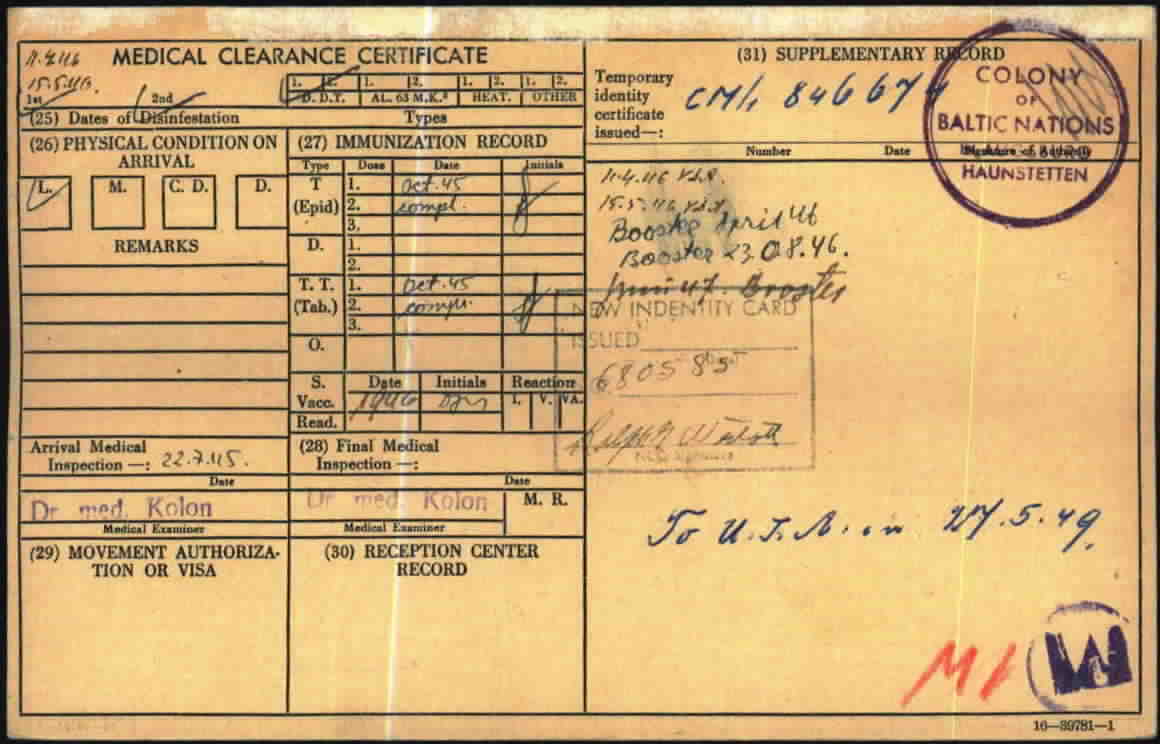 MEDICAL CLEARANCE CERTIFICATE
11.4.46
15.5.46.
1st 2nd
1. 2. 1. 2. 1. 2. 1. 2.
D. D. T. AL. 63 M.K.³ HEAT. OTHER
(25) Dates of Disinfestation Types
(26) PHYSICAL CONDITION ON
ARRIVAL
L. M. C. D. D.
REMARKS
Arrival Medical
Inspection —: 22.7.45.
Date
Dr med. Kolon
Medical Examiner
(27) IMMUNIZATION RECORD
Type Dose Date Initials
T 1. Oct. 45
(Epid) 2. compl.
3.
D. 1.
2.
T. T. 1. Oct. 45
(Tab.) 2. compl.
3.
O.
S. Date Initials Reaction
Vacc. I. V. VA.
Read.
(28) Final Medical
Inspection —:
Date
Dr med. Kolon
M. R.
Medical Examiner
(29) MOVEMENT AUTHORIZA-
TION OR VISA
(30) RECEPTION CENTER
RECORD
(31) SUPPLEMENTARY RECORD
Temporary
identity
certificate
issued—:
846674
Number Date
COLONY
OF
BALTIC NATIONS
HAUNSTETTEN
11.4.46
15.5.46
Booster April 46
Booster 23.08.46.
Booster
NEW INDENTITY CARD
ISSUED
680585
To U.S.A. on 27.5.49.
M
16—39781—1